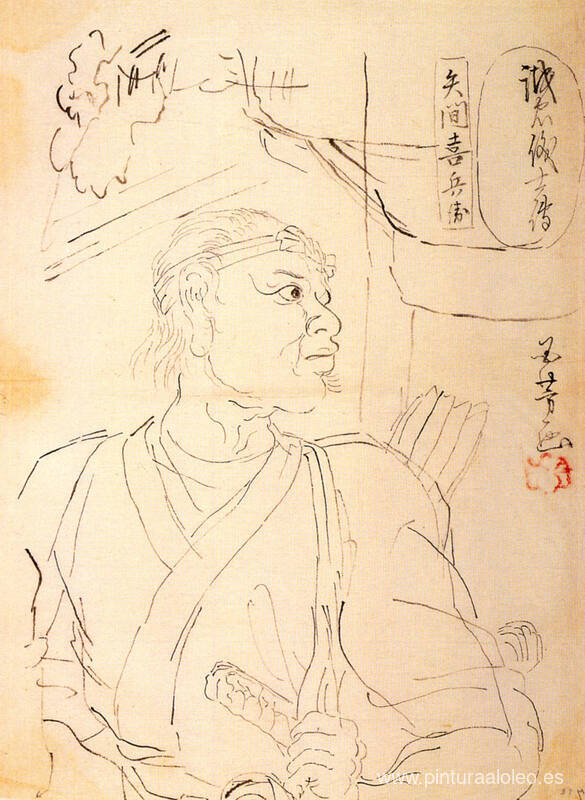 誠忠義士傳
矢間喜兵衛
国芳画
www.pinturaaloleo.es